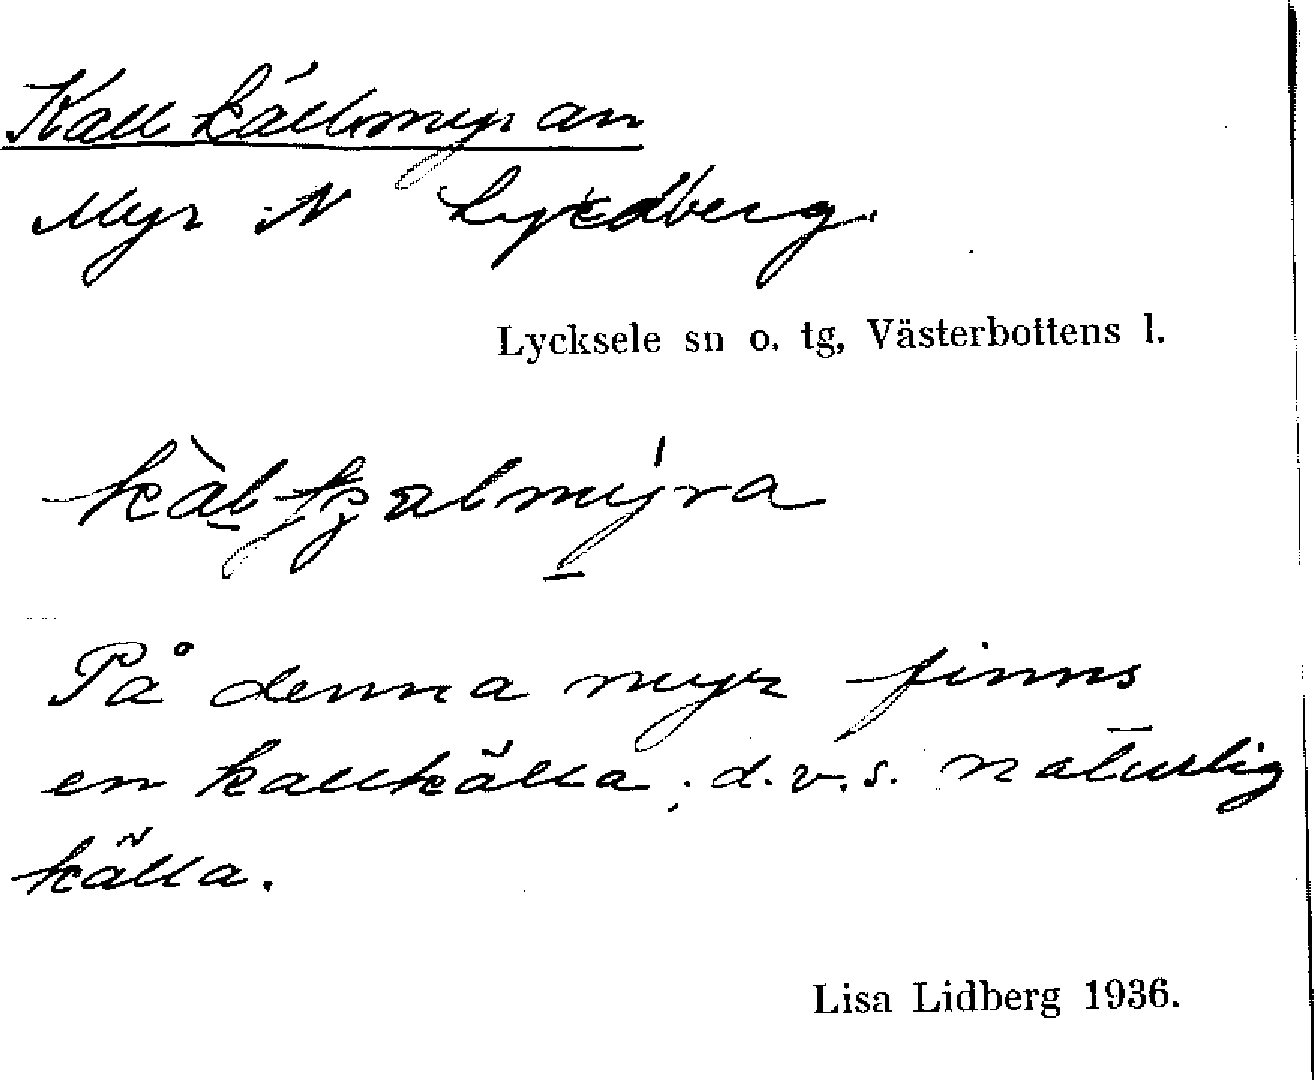 Kallkällmyran
Myr N Lycdberg.
Lycksele sn o. tg, Västerbottens l.
På denna myr finns
en kallkälla, d.v.s. naturlig
källa.
Lisa Lidberg 1936.